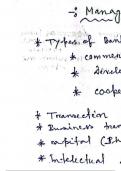 :- Manag
* Types of Ban
* comme
* Deve
* coope
* Transaction
* Business tran
* capital (Ph
* Intelectual